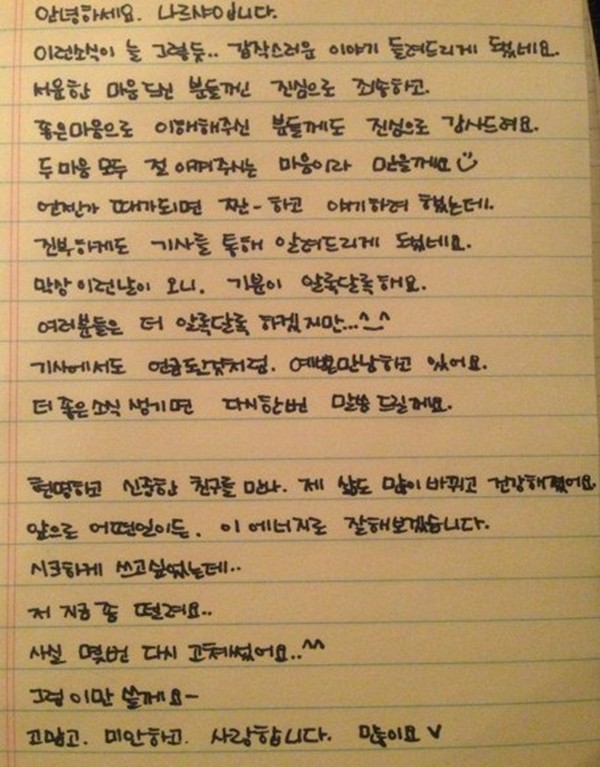 안녕하세요. 나르샤입니다.
이런소식이 늘 그렇듯.. 갑작스러운 이야기 들려드리게 됐네요.
서운한 마음드신 분들껜 진심으로 죄송하고.
좋은마음으로 이해해주신 분들께도 진심으로 감사드려요.
두마음 모두 절 아껴주시는 마음이라 믿을께요
언젠가 때가되면 짠- 하고 얘기하려 했는데.
진부하게도 기사를 통해 알려드리게 됐네요.
막상 이런날이 오니. 기분이 알록달록해요.
여러분들은 더 알록달록 하겠지만...^_^
기사에서도 언급된것처럼. 예쁜만남하고 있어요.
더 좋은소식 생기면 다시한번 말씀 드릴께요.
현명하고 신중한 친구를 만나. 제 삶도 많이 바뀌고 건강해졌어요.
앞으로 어떤일이든. 이 에너지로 잘해보겠습니다.
시크하게 쓰고싶었는데..
저 지금 좀 떨려요..
사실 몇번 다시 고쳐썼어요..^^
그럼 이만 쓸께요-
고맙고. 미안하고. 사랑합니다. 많이요 V